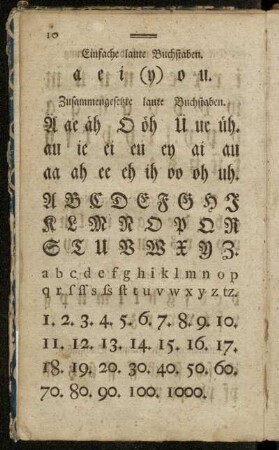 10
Einfache laute Buchstaben.
a e i (y) o u.
Zusammengesetzte laute Buchstaben.
A ae äh O öh U ue üh.
au ie ei eu ey ai au
aa ah ee eh ih oo oh uh.
A B C D E F G H I
K L M N O P Q R
S T U V W X Y Z.
a b c d e f g h i k l m n o p
q r ſ ſſ s ſs ſt t u v w x y z tz.
1. 2. 3. 4. 5. 6. 7. 8. 9. 10.
11. 12. 13. 14. 15. 16. 17.
18. 19. 20. 30. 40. 50. 60.
70. 80. 90. 100. 1000.